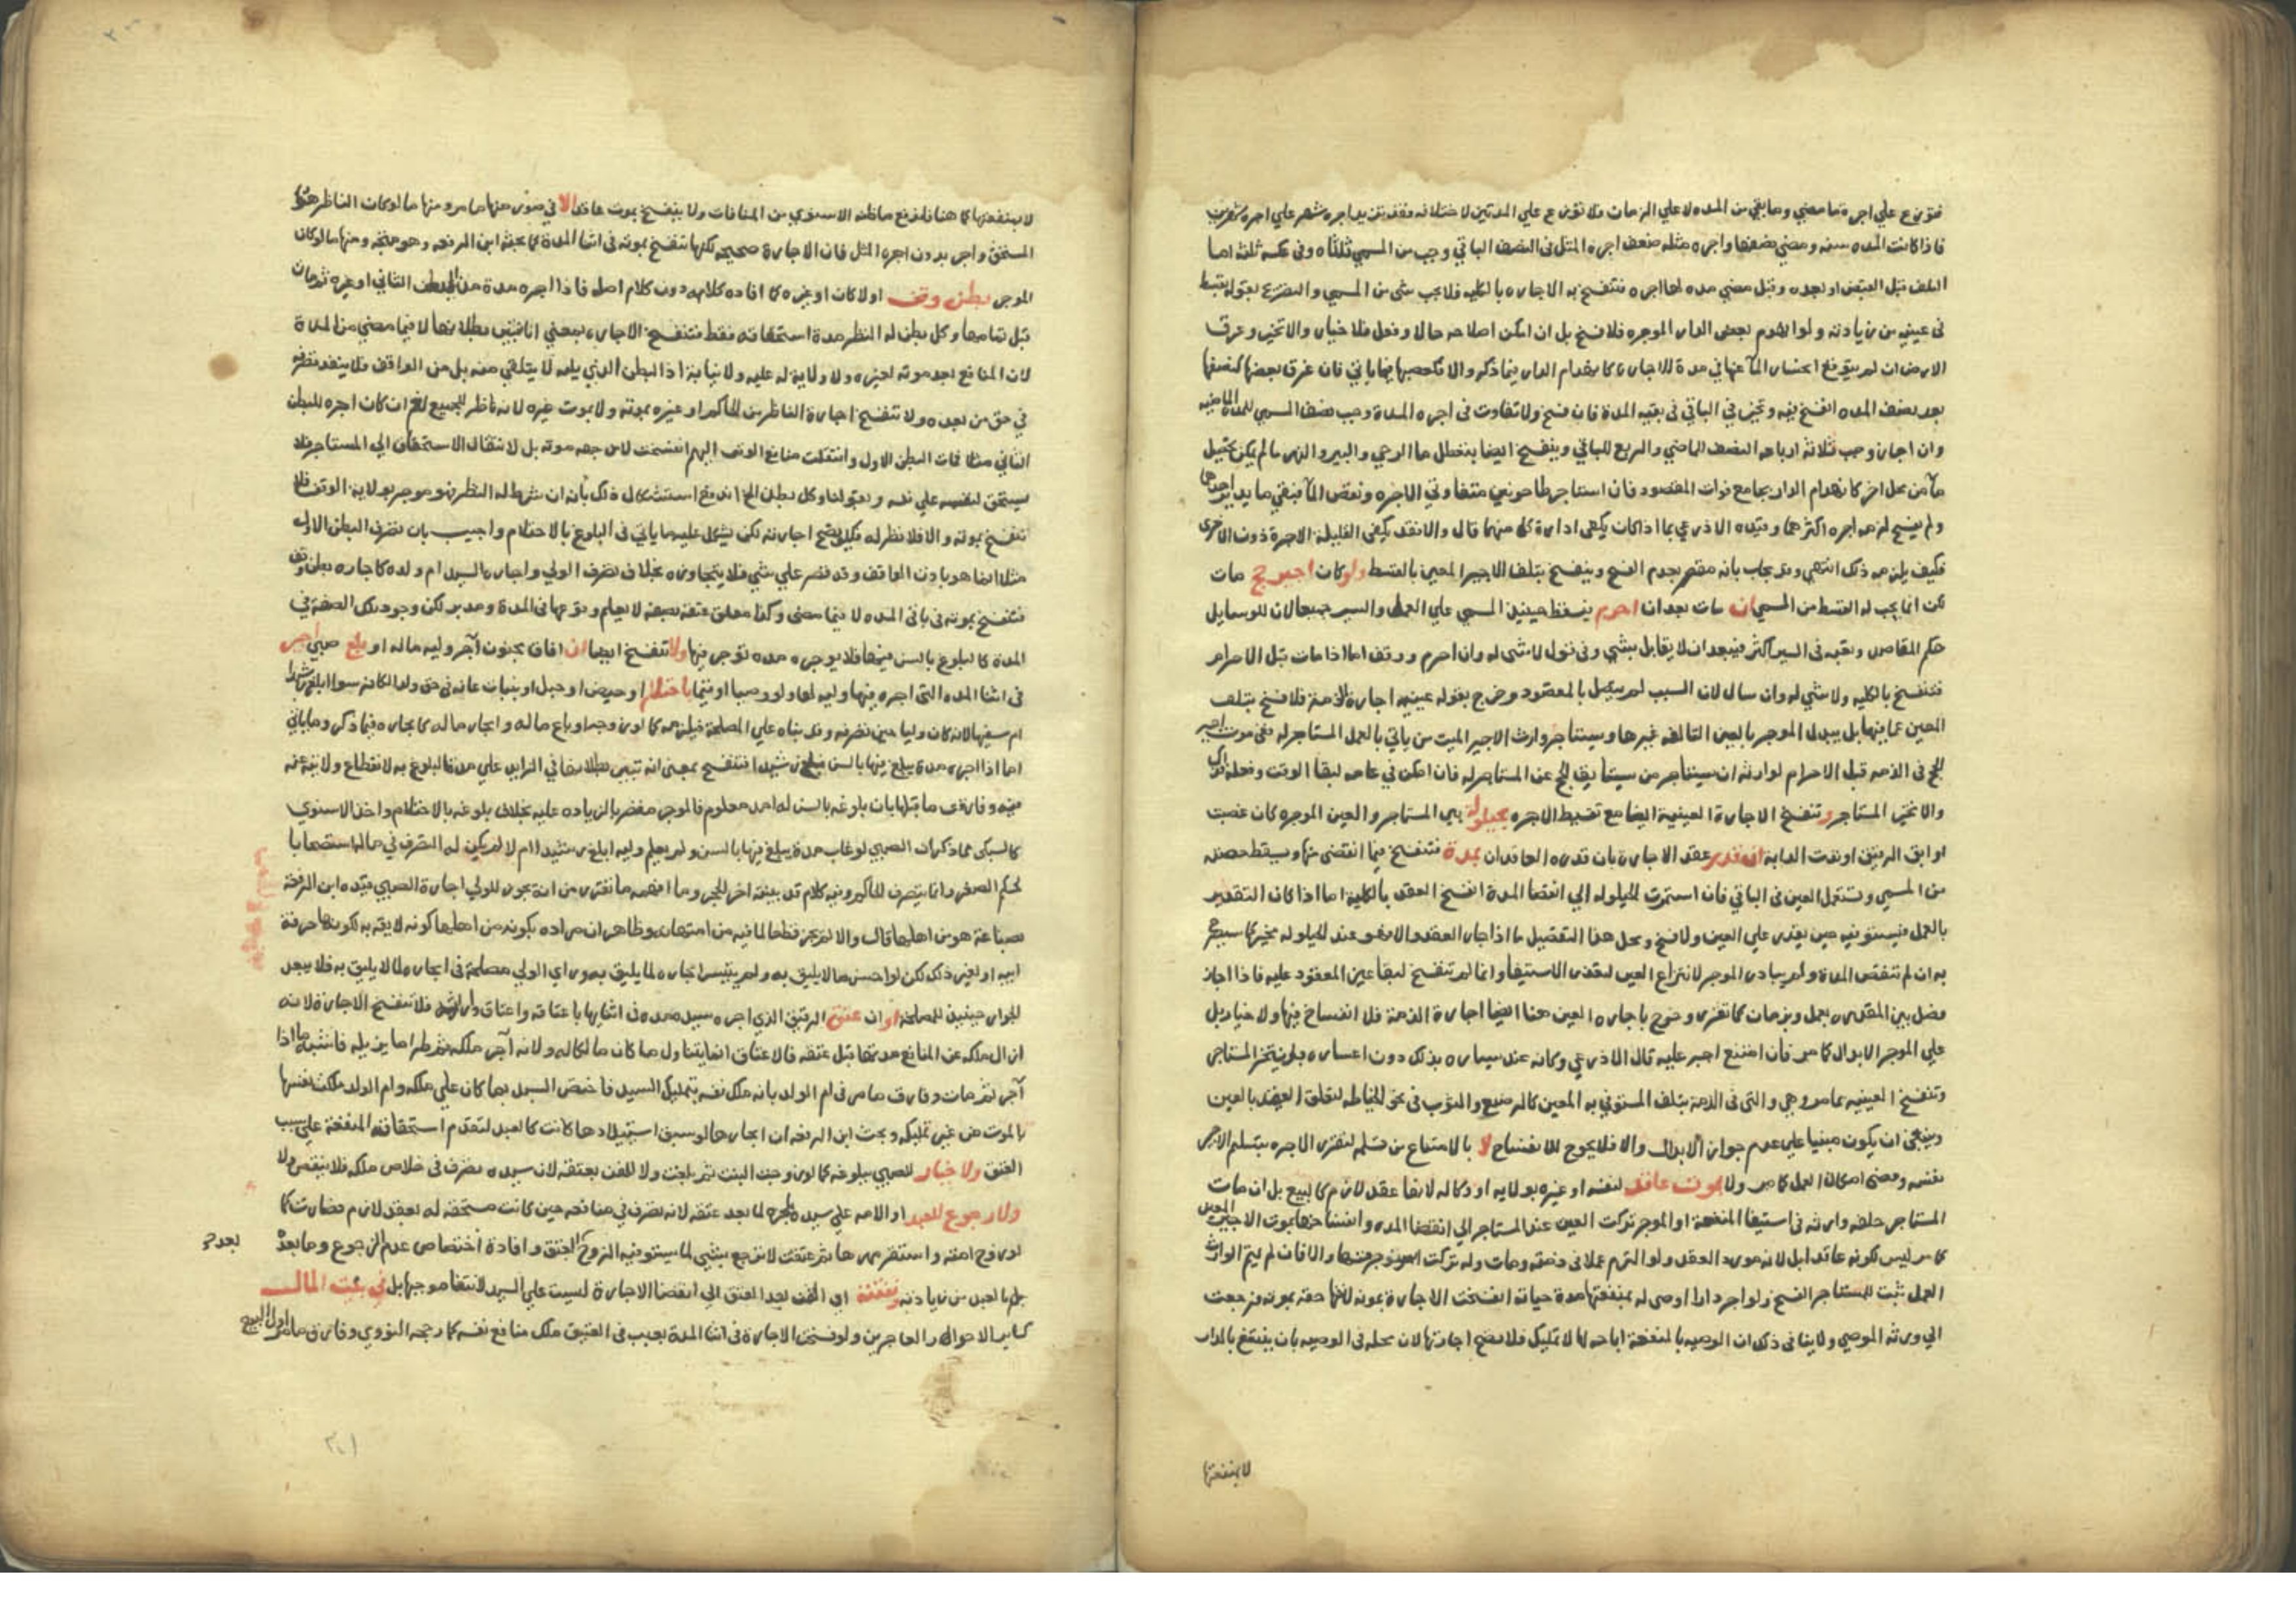 فتوزع علي اجرة ما مضي وما بقي من المده لا علي الزمان ولا توزع علي المدتين لاختلافه فقد تزيد اجره شهر علي اجره شهرين
فاذا كانت المده سنه ومضي نصفها واجره مثله ضعف اجره المثل في النصف الباقي وجب من المسمي ثلثاه وفي عكسه ثلثه اما
التلف قبل القبض او بعده وقبل مضي مده لها اجره فتنفسخ به الاجاره بالكليه فلا يجب شي من المسمي
في عينيه من زيادته ولو انهدم بعض الدار الموجره فلا فسخ بل ان امكن اصلاحه حالا وفعل فلا خيار والا تخير وغرق
الارض ان لم يتوقع انحسار المآ عنها في مدة الاجاره كانهدام الدار فيما ذكر والا فكغصبها فيما ياتي فان غرق بعضها كنصفها
بعد نصف المده انفسخ فيه وتخير في الباقي في بقيه المدة فان فسخ ولا تفاوت في اجره المدة وجب نصف المسمي للمدة الماضيه
وان اجاز وجب ثلاثة ارباعه النصف الماضي والربع للباقي وينفسخ ايضا بتعطل ما الرحي والبير والنهر ما لم يكن تحصيل
مآ من محل اخر كانهدام الدار بجامع فوات المقصود فان استاجر طاحونين متفاوتي الاجره ونقص المآ فبقي ما يدير احداهما
ولم يفسخ لزمه اجره اكثرهما وقيده الاذرعي بما اذا كان يكفي ادارة كل منهما قال والا فقد يكفي القليلة الاجرة دون الاخري
فكيف يلزمه ذلك انتهي وقد يجاب بانه مقصر بعدم الفسخ وينفسخ بتلف الاجير المعين بالقسط ولو كان اجير حج مات
لكن انما يجب له القسط من المسمي ان مات بعد ان احرم فيسقط حينيذ المسمي علي العمل والسير جميعا لان للوسايل
حكم المقاصد وتعبه في السير اكثر فيبعد ان لا يقابل بشي وفي قول لا شي له وان احرم ووقف اما اذا مات قبل الاحرام
فتنفسخ بالكليه ولا شي له وان سار لان السبب لم يتصل بالمقصود وخرج بقوله عينيه اجارة الذمة فلا فسخ بتلف
المعين عما فيها بل يبدل الموجر بالعين التالفه غيرها ويستاجر وارث الاجير الميت من ياتي بالعمل المستاجر له ففي موت اجير
الحج في الذمه قبل الاحرام لوارثه ان يستاجر من يستانف الحج عن المستاجر له فان امكن في عامه لبقا الوقت وفعله فذاك
والا تخير المستاجر وتنفسخ الاجارة العينية ايضا مع تقسيط الاجره بحيلولة بين المستاجر والعين الموجره كان غصبت
او ابق الرقيق او ندت الدابة ان قدر عقد الاجارة بان قدره العاقدان بمدة فتنفسخ فيما انقضي منها ويسقط حصته
من المسمي وتستعمل العين في الباقي فان استمرت الحيلوله الي انقضا المدة انفسخ العقد بالكلية اما اذا كان التقدير
بالعمل فيستوفيه حين يقدر علي العين ولا فسخ ومحل هذا التفصيل ما اذا جاز العقد والا فهو عند الحيلوله بخير كما سيصرح
به ان لم تنقض المدة ولم يبادر الموجر لانتزاع العين لتعذر الاستيفا وانما لم تنفسخ لبقا عين المعقود عليه فاذا اجاز
فصل بين المقدره بعمل وزمان كما تقرر وخرج باجاره العين هنا ايضا اجارة الذمة فلا انفساخ فيها ولا خيار بل
علي الموجر الابدال كما مر فان امتنع اجبر عليه قال الاذرعي وكانه عند يساره بذلك دون اعساره بل يتخير المستاجر
وتنفسخ العينيه بما مر وهي والتي في الذمة بتلف المستوفي به المعين كالرضيع والثوب في نحو الخياطه لتعلق العقد بالعين
وينبغي ان يكون مبنيا علي عدم جواز الابدال والا فلا يحوج للانفساخ لا بالامتناع من تسلمه لتقرر الاجره بتسلم الاجير
نفسه ومضي امكان العمل كما مر ولا بموت عاقد لنفسه او غيره بولايه او وكاله لانها عقد لازم كالبيع بل ان مات
المستاجر خلفه وارثه في استيفا المنفعة او الموجر تركت العين عند المستاجر الي انقضا المده وانفساخها بموت الاجير المعين
كما مر ليس لكونه عاقدا بل لانه مورد العقد ولو التزم عملا في ذمته ومات وله تركت استوجر منها والا فان لم يتم الوارث
العمل ثبت للمستاجر الفسخ ولو اجر دارا اوصي له بمنفعتها مدة حياته انفسخت الاجارة بموته لانتها حقه بموته فرجعت
الي ورثه الموصي ولا ينافي ذلك ان الوصيه بالمنفعة اباحه لها لا تمليك فلا تصح اجارتها لان محله في الوصيه بان ينتفع بالدار
لا بمنفعتها
لا بمنفعتها كما هنا فاندفع ما ظنه الاسنوي من المنافات ولا ينفسخ بموت عاقد الا في صور منها ما مر ومنها ما لو كان الناظر هو
المستحق واجر بدون اجره المثل فان الاجارة صحيحه لكنها تنفسخ بموته في اثنا المدة كما بحثه ابن الرفعه وهو متجه ومنها ما لو كان
الموجر بطن وقف اولا كان او غيره كما افاده كلامه دون كلام اصله فاذا اجره مدة من البطن الثاني او غيره ثم مات
قبل تمامها وكل بطن له النظر مدة استحقاقه فقط فتنفسخ الاجاره بمعني انا نتبين بطلانها لا فيما مضي من المدة
لان المنافع بعد موته لغيره ولا ولاية له عليه ولا نيابة اذ البطن الذي يليه لا يتلقي منه بل من الواقف فلا ينفذ تصرفه
في حق من بعده ولا تنفسخ اجارة الناظر من الحاكم او غيره بموته ولا بموت غيره لانه ناظر للجميع نعم ان كان اجره للبطن
الثاني مثلا فمات البطن الاول وانتقلت منافع الوقف اليهم انفسخت لا من جهه موته بل لانتقال الاستحقاق الي المستاجر فلا
يستحق لنفسه علي نفسه وبقولنا وكل بطن الخ اندفع استشكال ذلك بانه ان شرط له النظر فهو موجر بولاية الوقف فلا
تنفسخ بموته والا فلا نظر له فكيف تصح اجارته لكن يشكل عليه ما ياتي في البلوغ بالاحتلام واجيب بان تصرف البطن الاول
مثلا انما هو باذن الواقف وقد قصر علي شي فلا يتجاوزه بخلاف تصرف الولي واجارة السيد ام ولده كاجاره بطن وقف
فتنفسخ بموته في باقي المده لا فيما مضي وكذا معلق عتقه بصفه لا يعلم وقوعها في المدة ومدبر لكن وجود تلك الصفة في
المدة كالبلوغ بالسن فيها فلا يوجره مده توجر فيها ولا تنفسخ ايضا ان افاق مجنون آجر وليه ماله او بلغ صبي اجر
في اثنا المده التي اجره فيها وليه لها ولو وصيا او قيما باحتلام او حيض او حبل او نبات عانه في حق ولد الكافر سوا ابلغ رشيدا
ام سفيها لانه كان وليا حين تصرفه وقد بناه علي المصلحة فيلزمه كما لو زوجه او باع ماله وايجار ماله كايجاره فيما ذكر وما ياتي
اما اذا اجره مدة يبلغ فيها بالسن فبلغ رشيدا فتنفسخ بمعني انه تبين بطلانها في الزايد علي مدة البلوغ به لانقطاع ولايته عنه
فيه وفارق ما قبلها بان بلوغه بالسن له امد معلوم فالموجر مقصر بالزياده عليه بخلاف بلوغه بالاحتلام واخذ الاسنوي
كالسبكي مما ذكر ان الصبي لو غاب مدة يبلغ فيها بالسن ولم يعلم وليه ابلغ رشيدا ام لا لم يكن له التصرف في ماله استصحابا
لحكم الصغر وانما يتصرف الحاكم وفيه كلام قد بينته اخر الحجر وما افهمه ما تقرر من انه يجوز للولي اجارة الصبي قيده ابن الرفعة
بصناعة هو من اهلها قال والا لم يجز قطعا لما فيه من امتهانه وظاهر ان مراده بكونه من اهلها كونه لايقه به لكونها حرفة
ابيه او لغير ذلك لكن لو احسن ما لا يليق به ولم يتيسر ايجاره لما يليق به وراي الولي مصلحة في ايجاره لما لا يليق به فلا يبعد
الجواز حينيذ للمصلحة او ان عتق الرقيق الذي اجره سيده مده في اثنايها باعتاقه واعتاق وارثه فلا تنفسخ الاجارة لانه
ازال ملكه عن المنافع مدتها قبل عتقه فالاعتاق انما يتناول ما كان مالكا له ولانه آجر ملكه ثم طرا ما يزيله فاشبه ما اذا
آجر ثم مات وفارق ما مر في ام الولد بانه ملك نفسه بتمليك السيد فاختص السيد بما كان علي ملكه وام الولد ملكت نفسها
بالموت من غير تمليكه وبحث ابن الرفعه ان ايجارها لو سبق استيلادها كانت كالعبد لتقدم استحقاق المنفعة علي سبب
العتق ولا خيار للصبي ببلوغه كما لو زوجت البنت ثم بلغت ولا للقن بعتقه لان سيده تصرف في خلاص ملكه فلا ينقض ولا
ولا رجوع للعبد او الامه علي سيده باجره لما بعد عتقه لانه تصرف في منافعه حين كانت مستحقه له بعقد لازم فصارت كما
لو زوج امته واستقر مهرها ثم عتقت لا ترجع بشي لما يستوفيه الزوج بعد العتق وافادة اختصاص عدم الرجوع وما بعده
بعد صح
بالعبد من زيادته ونفقته اي القن بعد العتق الي انقضا الاجارة ليست علي السيد لانتفا موجبها بل في بيت المال
كساير الاحوال والعاجزين ولو فسخت الاجارة في اثنا المدة بعيب في العتيق ملك منافع نفسه كما رجحه النووي وفارق ما مر اول البيع